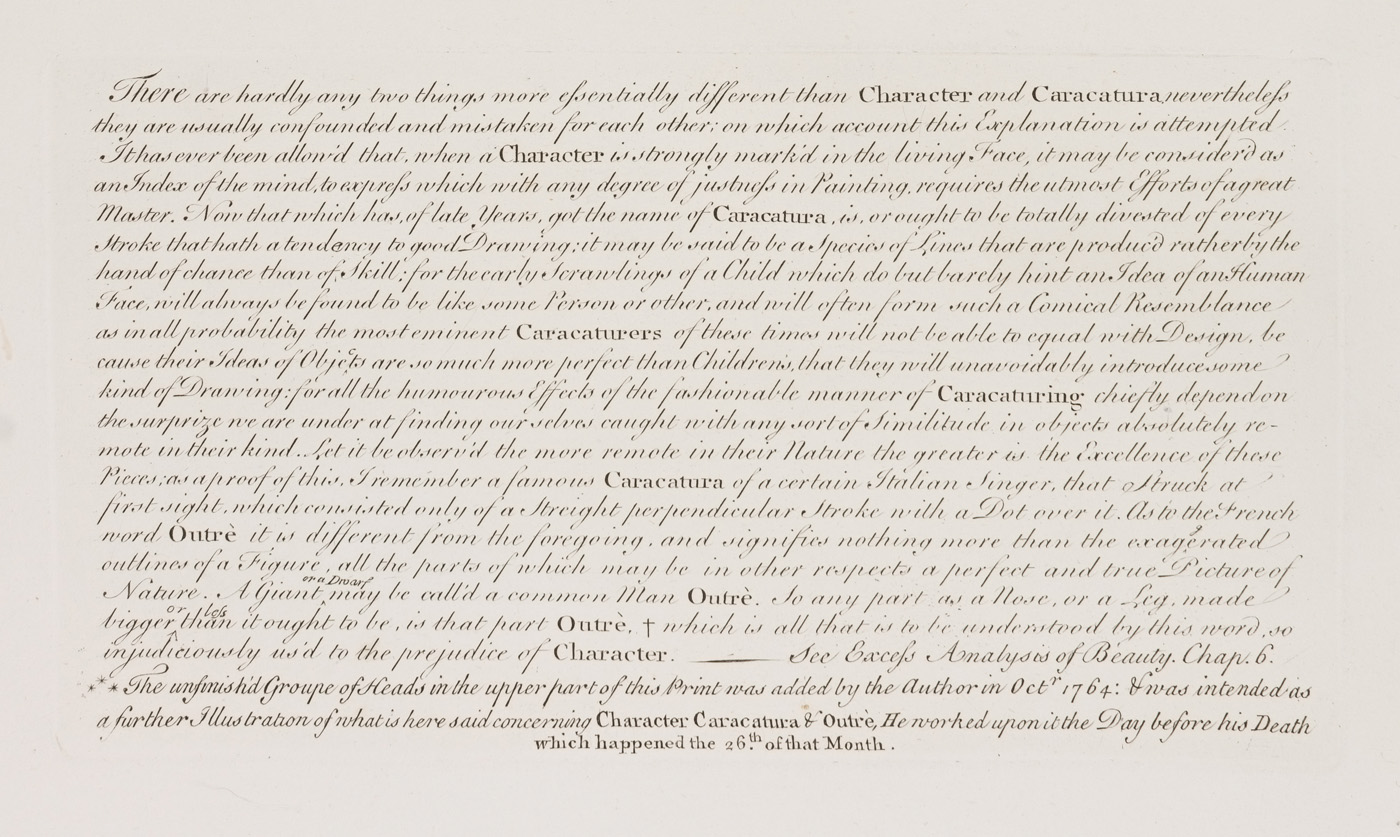 There are hardly any two things more essentially different than Character and Caracatura, nevertheless
they are usually confounded and mistaken for each other; on which account this Explanation is attempted.
It has ever been allow'd that, when a Character is strongly mark'd in the living Face, it may be consider'd as
an Index of the mind, to express which with any degree of justness in Painting, requires the utmost Efforts of a great
Master. Now that which has, of late Years, got the name of Caracatura, is, or ought to be totally divested of every
Stroke that hath a tendency to good Drawing; it may be said to be a Species of Lines that are produc'd rather by the
hand of chance than of Skill; for the early Scrawlings of a Child which do but barely hint an Idea of an Human
Face, will always be found to be like some Person or other, and will often form such a Comical Resemblance
as in all probability the most eminent Caracaturers of these times will not be able to equal with Design, be
cause their Ideas of Objects are so much more perfect than Children's, that they will unavoidably introduce some
kind of Drawing: for all the humourous Effects of the fashionable manner of Caracaturing chiefly depend on
the surprize we are under at finding our selves caught with any sort of Similitude in objects absolutely re-
mote in their kind. Let it be observ'd the more remote in their Nature the greater is the Excellence of these
Pieces; as a proof of this, I remember a famous Caracatura of a certain Italian Singer, that Struck at
first sight, which consisted only of a Streight perpendicular Stroke with a Dot over it. As to the French
word Outrè it is different from the foregoing, and signifies nothing more than the exaggerated
outlines of a Figure, all the parts of which may be in other respects a perfect and true Picture of
Nature. A Giant or a Dwarf may be call'd a common Man Outrè. So any part as a Nose, or a Leg, made
bigger or less than it ought to be, is that part Outrè, † which is all that is to be understood by this word, so
injudiciously us'd to the prejudice of Character. —— See Excess Analysis of Beauty. Chap. 6.
*** The unfinish'd Groupe of Heads in the upper part of this Print was added by the Author in Octr 1764: & was intended as
a further Illustration of what is here said concerning Character Caracatura & Outrè, He worked upon it the Day before his Death
which happened the 26th of that Month.